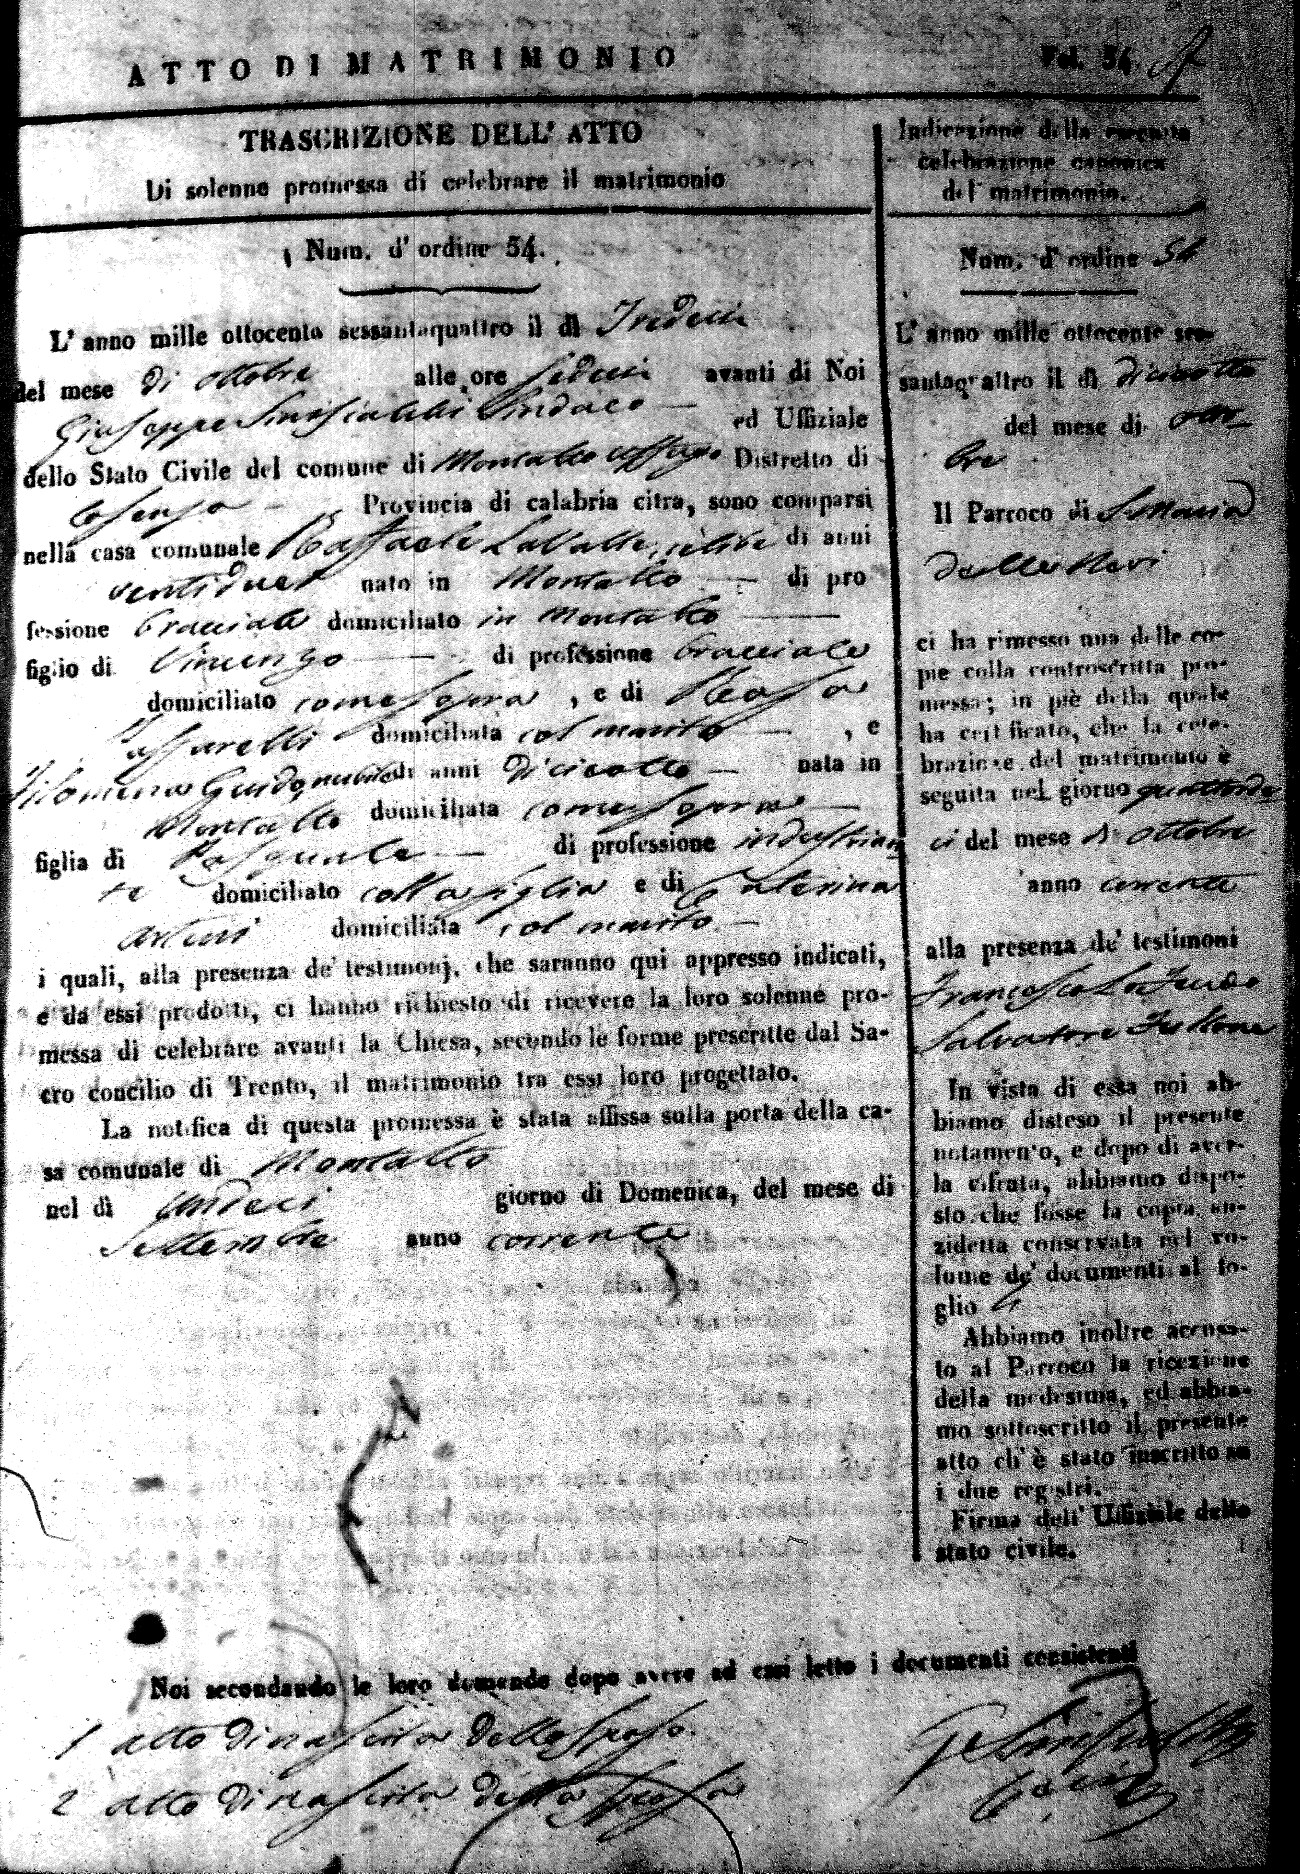 ATTO DI MATRIMONIO
Fol. 34
TRASCRIZIONE DELL' ATTO
Di solenne promessa di celebrare il matrimonio
Num. d' ordine 54.
L' anno mille ottocento sessantaquattro il dì Tredeci
del mese di ottobre alle ore sedeci avanti di Noi
Giuseppe Sindaco ed Uffiziale
dello Stato Civile del comune di Montalto uffugo Distretto di
Cosenza Provincia di calabria citra, sono comparsi
nella casa comunale Raffaele LaValle, celibe di anni
ventidue nato in Montalto di pro
fessione bracciale domiciliato in Montalto
figlio di Vincenzo di professione bracciale
domiciliato come sopra , e di Rosa
Passarelli domiciliata col marito , e
Filomena Guido, nubile di anni diciotto nata in
Montalto domiciliata come sopra
figlia di Pasquale di professione industrian
te domiciliato colla figlia e di Caterina
Arturi domiciliata col marito
i quali, alla presenza de' testimonj, che saranno qui appresso indicati,
e da essi prodotti, ci hanno richiesto di ricevere la loro solenne pro-
messa di celebrare avanti la Chiesa, secondo le forme prescritte dal Sa-
cro concilio di Trento, il matrimonio tra essi loro progettato.
La notifica di questa promessa è stata affissa sulla porta della ca-
sa comunale di Montalto
nel dì undeci giorno di Domenica, del mese di
Settembre anno corrente
Indicazione della seguita
celebrazione canonica
del matrimonio.
Num. d' ordine 54
L' anno mille ottocento ses-
santaquattro il dì diciotto
del mese di otto-
bre
Il Parroco di S. Maria
della Nevi
ci ha rimesso una delle co-
pie colla controscritta pro-
messa; in piè della quale
ha certificato, che la cele-
brazione del matrimonio è
seguita nel giorno quattorde
ci del mese di ottobre
anno corrente
alla presenza de' testimoni
Francesco
Salvatore
In vista di essa noi ab-
biamo disteso il presente
notamento, e dopo di aver-
la cifrata, abbiamo dispo-
sto che fosse la copia an-
zidetta conservata nel vo-
lume de' documenti al fo-
glio
Abbiamo inoltre accusa-
to al Parroco la ricezione
della medesima, ed abbia-
mo sottoscritto il presente
atto ch' è stato inscritto su
i due registri.
Firma dell' Uffiziale dello
stato civile.
Noi secondando le loro domande dopo avere ad essi letto i documenti consistenti
1 atto di nascita dello sposo.
2 atto di nascita della sposa